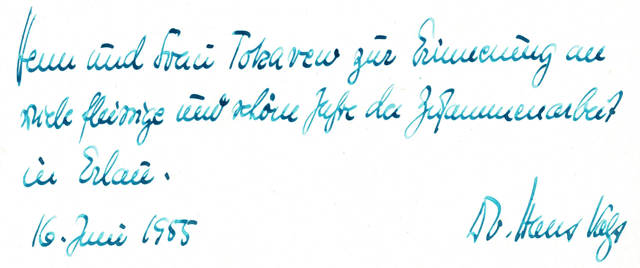 Herrn und Frau Tokarew zur Erinnerung an
viele fleissige und schöne Jahre der Zusammenarbeit
in Erlau.
16. Juni 1955
Dr. Hans